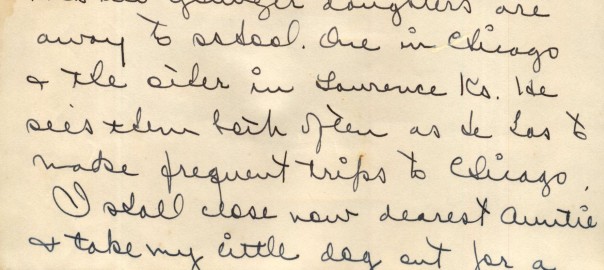 younger daughters are
away to school. One in Chicago
& the other in Lawrence Ks. He
sees them both often as he has to
make frequent trips to Chicago.
I shall close now dearest Auntie
& take my little dog out for a